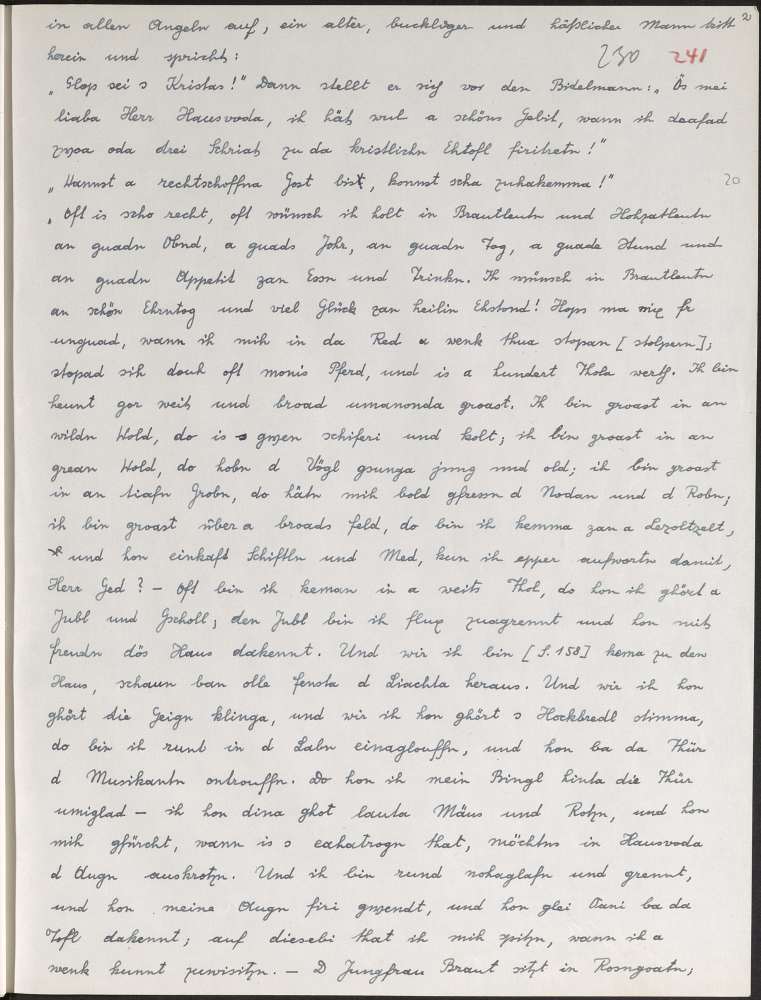 2
in allen Angeln auf, ein alter, buckliger und häßlicher Mann tritt
herein und spricht:
230 241
„Glop sei s Kristas!" Dann stellt er sich vor den Bidelmann: „Ös mei
liaba Herr Hausvoda, ih hät wul a schöns Gebit, wann ih deafad
zwoa oda drei Schriat zu da kristlichn Ehtofl firitretn!"
„Wannst a rechtschoffna Gost bist, konnst scha zuhakemma!"
20
„Oft is scho recht, oft wünsch ih holt in Brautleutn und Hohzatleutn
an guadn Obnd, a guads Johr, an guadn Tog, a guade Stund und
an guadn Appetit zan Essn und Trinkn. Ih wünsch in Brautleutn
an schön Ehrntog und viel Glück zan heilin Ehstond! Hops ma nix fr
unguad, wann ih mih in da Red a wenk thua stopan [stolpern];
stopad sih douh oft monis Pferd, und is a hundert Thola werth. Ih bin
heunt gor weit und broad umanonda groast. Ih bin groast in an
wildn Wold, do is s gwen schiferi und kolt; ih bin groast in an
grean Wold, do hobn d Vögl gsunga jung und old; ih bin groast
in an tiafn Grobn, do hätn mih bold gfressn d Nodan und d Robn;
ih bin groast über a broads Feld, do bin ih kemma zan a Lezoltzelt,
und hon einkaft Schiftln und Med, kun ih epper aufwortn damit,
Herr Ged? – Oft bin ih keman in a weits Thol, do hon ih ghört a
Jubl und Gscholl; den Jubl bin ih flux zuagrennt und hon mit
freudn dös Haus dakennt. Und wir ih bin [S. 158] kema zu den
Haus, schaun ban olle Fensta d Liachta heraus. Und wir ih hon
ghört die Geign klinga, und wir ih hon ghört s Hockbredl stimma,
do bin ih runt in d Labn einaglouffn, und hon ba da Thür
d Musikantn ontrouffn. Do hon ih mein Bingl hinta die Thür
umiglad – ih hon dina ghot lauta Mäus und Rotzn, und hon
mih gfürcht, wann is s eahatrogn that, möchtns in Hausvoda
d Augn auskrotzn. Und ih bin rund nohaglafn und grennt,
und hon meine Augn firi gwendt, und hon glei Oani ba da
Tofl dakennt; auf diesebi that ih mih spitzn, wann ih a
wenk kunnt zuwisitzn. – D Jungfrau Braut sitzt in Rosngoatn;